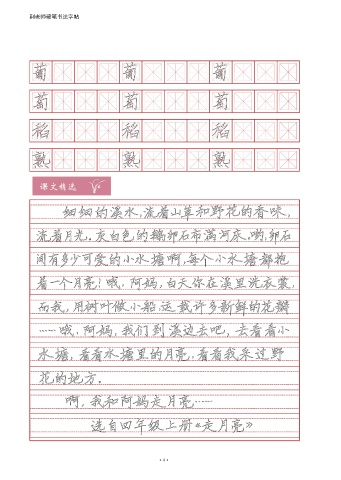 硬笔书法字帖
葡 葡 葡
萄 萄 萄
稻 稻 稻
熟 熟 熟
课文精选
细细的溪水,流着山草和野花的香味,
流着月光。灰白色的鹅卵石布满河床。哟,卵石
间有多少可爱的小水塘啊,每个小水塘都抱
着一个月亮!哦,阿妈,白天你在溪里洗衣裳,
而我,用树叶做小船,运载许多新鲜的花瓣
……哦,阿妈,我们到溪边去吧,去看看小
水塘,看看水塘里的月亮,看看我采过野
花的地方。
啊,我和阿妈走月亮……
选自四年级上册《走月亮》